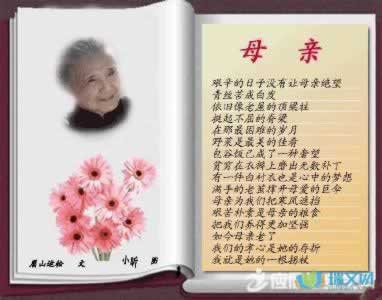 母 亲
艰辛的日子没有让母亲绝望
青丝苦成白发
依旧像老屋的顶梁柱
挺起不屈的脊梁
在那最困难的岁月
野菜是最美的佳肴
包谷饭已成了一种奢望
背篼在衣裤上磨出无数补丁
有一件白衬衣也是心中的梦想
满手的老茧撑开母爱的巨伞
母亲为我们把寒风遮挡
艰苦朴素是母亲的粮食
把我们养得更加坚强
如今母亲老了
我们的孝心是她的存折
我就是她的一根拐杖
眉山迎松 文 小昕 图